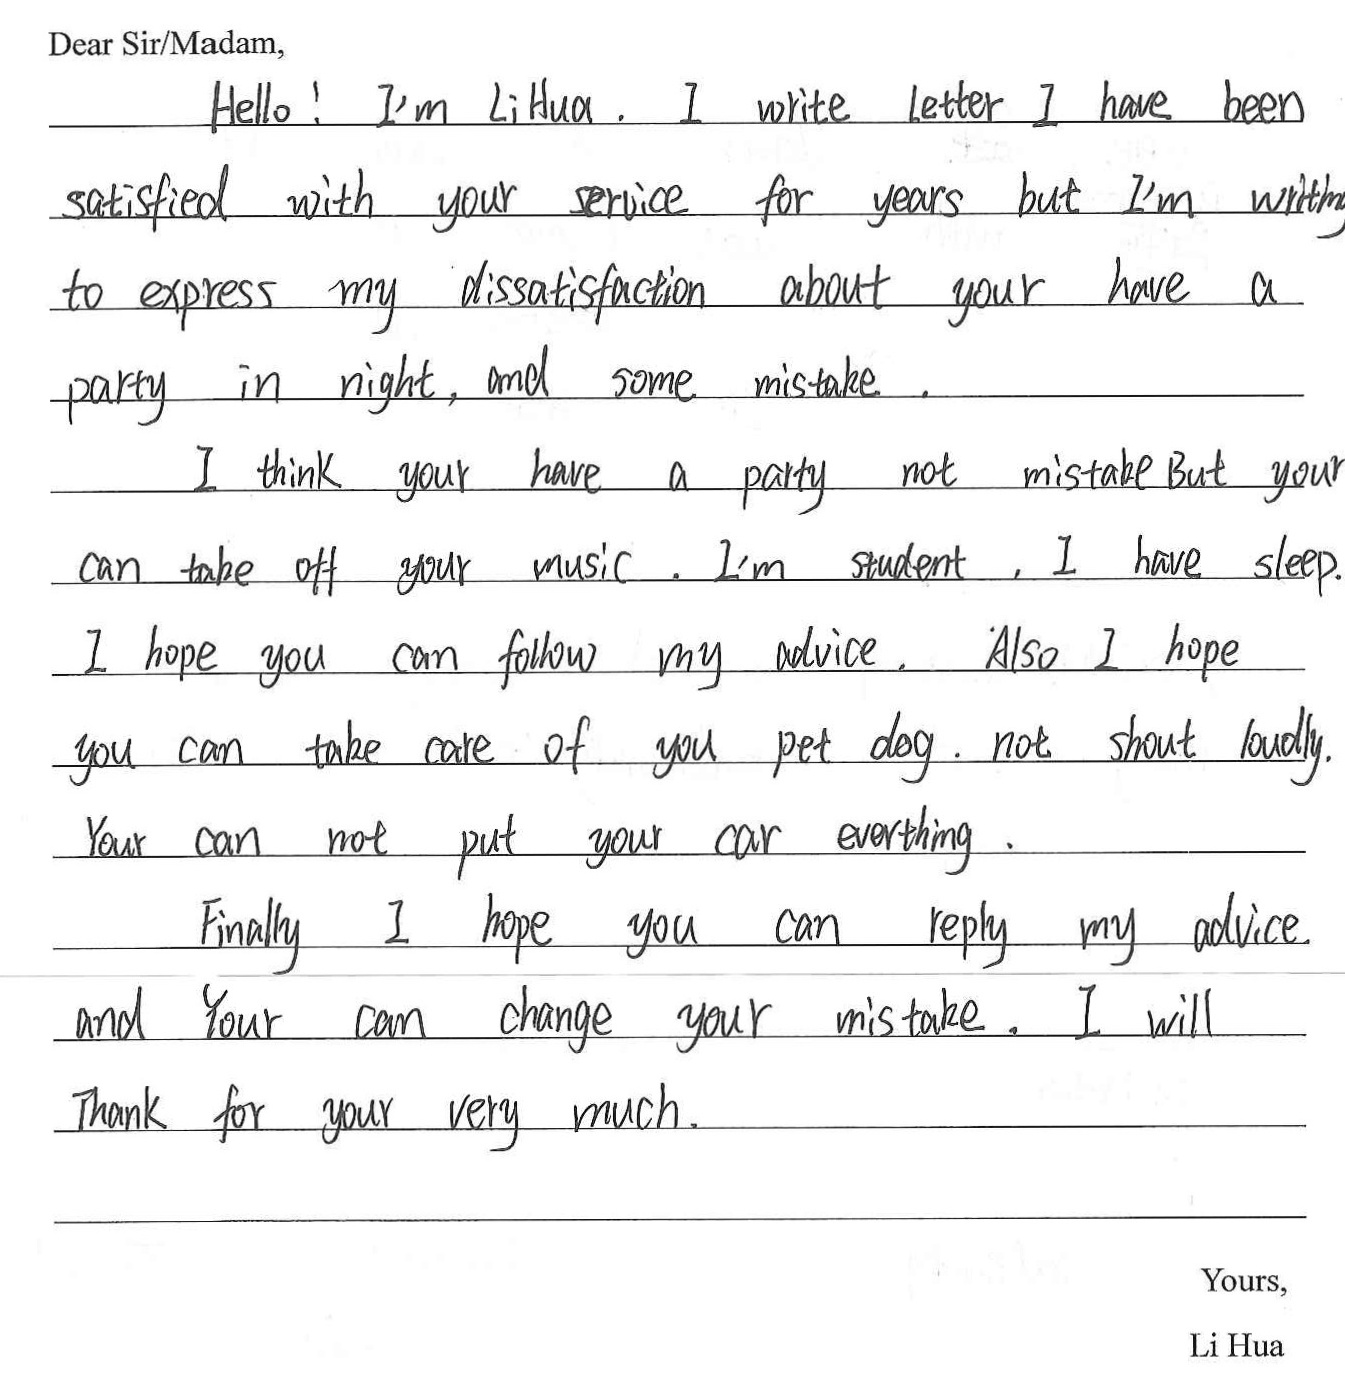 Dear Sir/Madam,
Hello! I'm Li Hua. I write letter I have been
satisfied with your service for years but I'm writing
to express my dissatisfaction about your have a
party in night, and some mistake.
I think your have a party not mistake But your
can take off your music. I'm student, I have sleep.
I hope you can follow my advice. Also I hope
you can take care of you pet dog. not shout loudly.
Your can not put your car everthing.
Finally I hope you can reply my advice.
and Your can change your mistake. I will
Thank for your very much.
Yours,
Li Hua